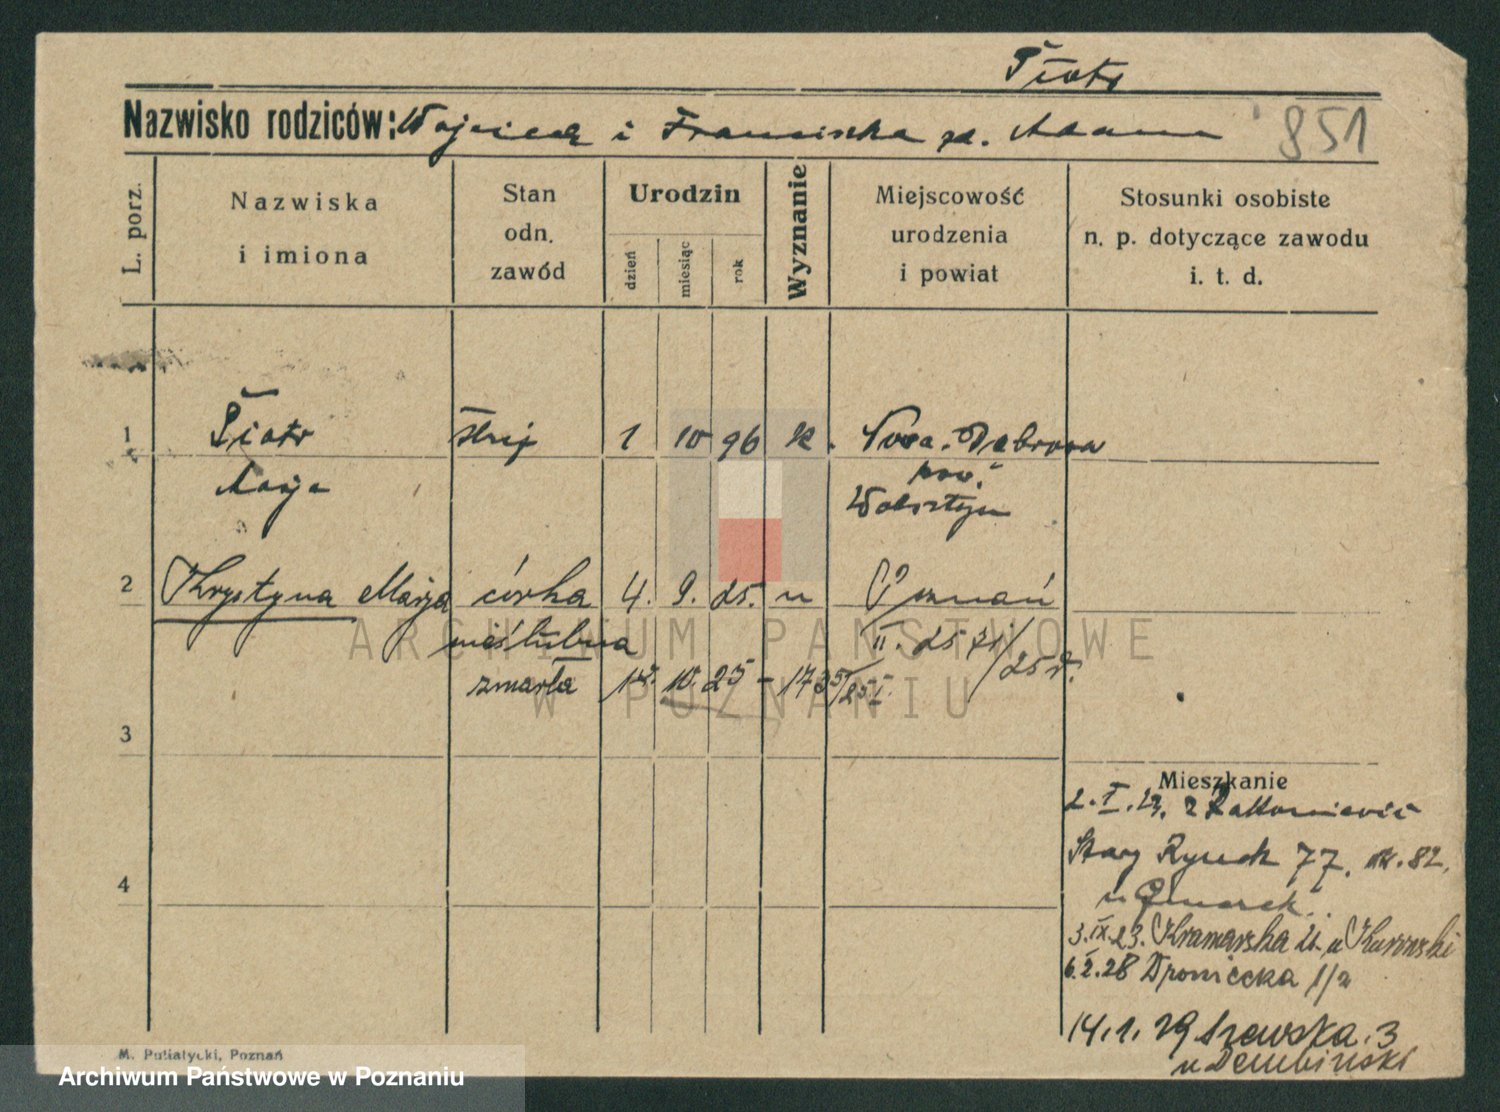 Piotr
Nazwisko rodziców: Wojciech i Franciszka zd. Adam 851
L. porz.
Nazwiska
i imiona
Stan
odn.
zawód
Urodzin
dzień
miesiąc
rok
Wyznanie
Miejscowość
urodzenia
i powiat
Stosunki osobiste
n. p. dotyczące zawodu
i. t. d.
1 Piotr 1 10 96 k. Nowa-Dąbrowa
pow.
Marja Wolsztyn
2 Krystyna Marja córka 4. 9. 25. Poznań
nieślubna II. 25
zmarła 14. 10. 25 - 1735/25 I.
3
4
Mieszkanie
Stary Rynek 77. m. 82.
3. IX. 23. Kramarska 21. u Kurowski
6. 2. 28 1/2
14. 1. 29 Szewska. 3
u Dembiński
M. Putiatycki, Poznań
ARCHIWUM PAŃSTWOWE
W POZNANIU
Archiwum Państwowe w Poznaniu